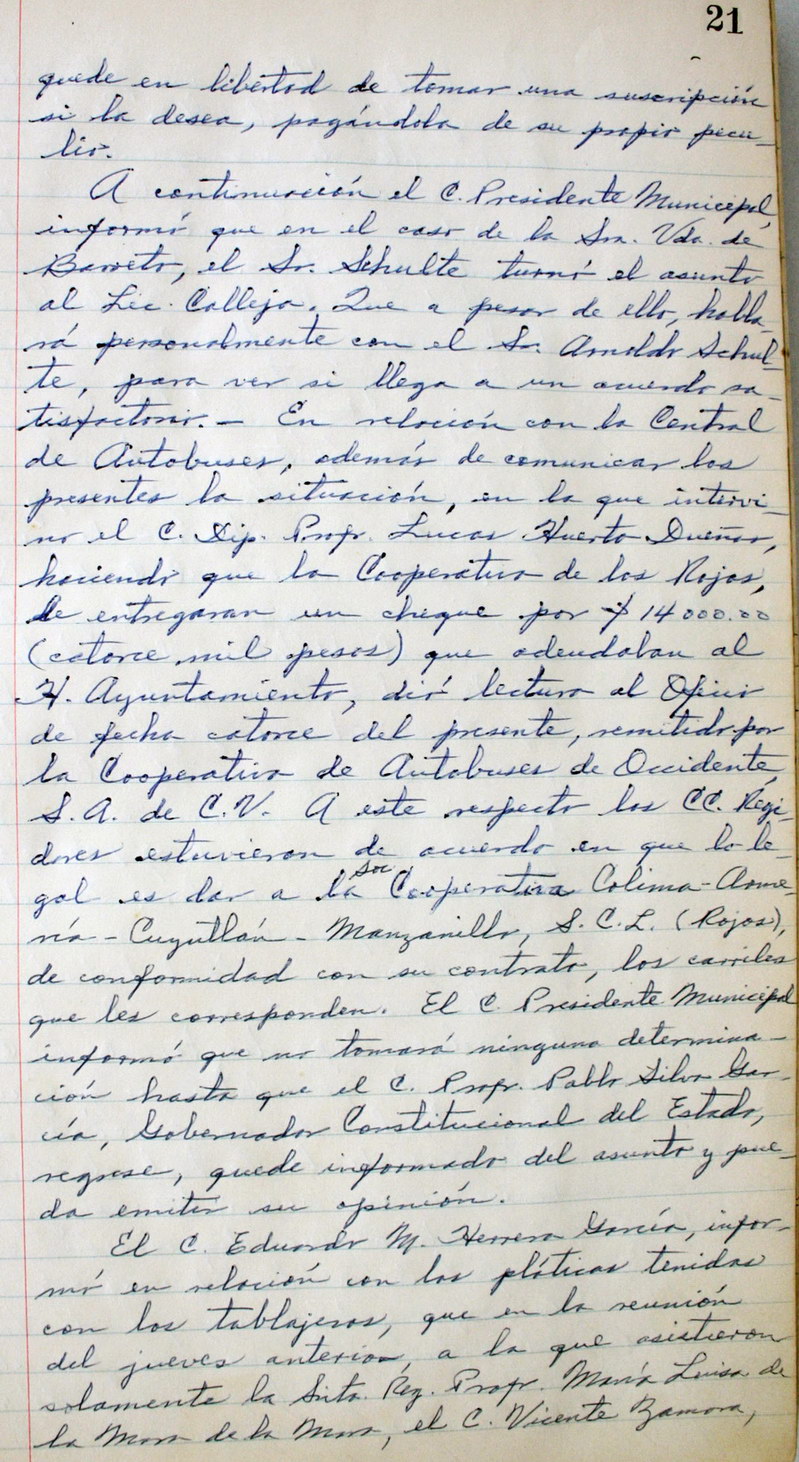 21
quede en libertad de tomar una suscripción
si la desea, pagándola de su propio pecu-
lio.
A continuación el C. Presidente Municipal,
informó que en el caso de la Sra. Vda. de
Barreto, el Sr. Schulte turnó el asunto
al Lic. Calleja. Que a pesar de ello, habla-
rá personalmente con el Sr. Arnoldo Schul-
te, para ver si llega a un acuerdo sa-
tisfactorio.- En relación con la Central
de Autobuses, además de comunicar los
presentes la situación, en la que intervi-
no el C. Dip. Profr. Lucas Huerta Dueñas,
haciendo que la Cooperativa de los Rojos,
le entregaran un cheque por $ 14000.00
(catorce mil pesos) que adeudaban al
H. Ayuntamiento, dió lectura al Oficio
de fecha catorce del presente, remitido por
la Cooperativa de Autobuses de Occidente,
S.A. de C.V. A este respecto los CC. Regi-
dores estuvieron de acuerdo en que lo le-
gal es dar a la Soc Cooperativa Colima-Arme-
ría-Cuyutlán-Manzanillo, S.C.L. (Rojos),
de conformidad con su contrato, los carriles
que les corresponden. El C. Presidente Municipal
informó que no tomará ninguna determina-
ción hasta que el C. Profr. Pablo Silva Gar-
cía, Gobernador Constitucional del Estado,
regrese, quede informado del asunto y pue-
da emitir su opinión.
El C. Eduardo M. Herrera García, infor-
mó en relación con las pláticas tenidas
con los tablajeros, que en la reunión
del jueves anterior, a la que asistieron
solamente la Srita. Reg. Profr. María Luisa de
la Mora de la Mora, el C. Vicente Zamora,